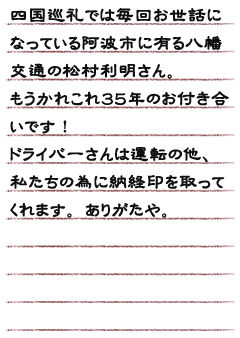 四国巡礼では毎回お世話に
なっている阿波市に有る八幡
交通の松村利明さん。
もうかれこれ35年のお付き合
いです！
ドライバーさんは運転の他、
私たちの為に納経印を取って
くれます。ありがたや。